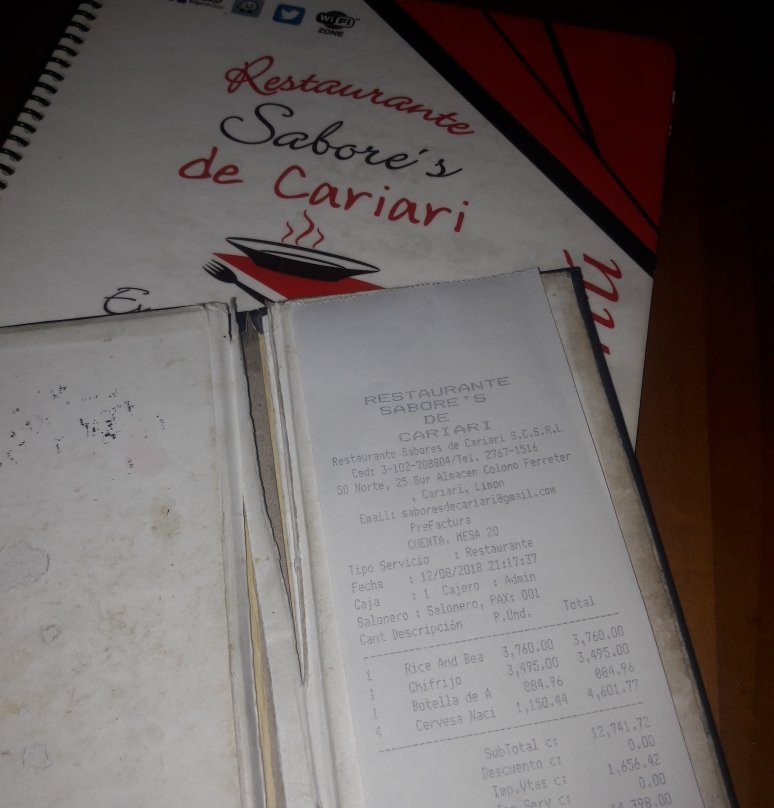 WiFi
ZONE
Restaurante
Sabore's
de Cariari
RESTAURANTE
SABORE'S
DE
CARIARI
Restaurante Sabores de Cariari S.C.S.R.L
Ced: 3-102-708804/Tel. 2767-1516
50 Norte, 25 Sur Almacen Colono Ferreter
, Cariari, Limon
Email: saboresdecariari@gmail.com
PreFactura
CUENTA. MESA 20
Tipo Servicio : Restaurante
Fecha : 12/08/2018 21:17:37
Caja : 1 Cajero : Admin
Salonero : Salonero, PAX: 001
Cant Descripción P.Und. Total
1 Rice And Bea 3,760.00 3,760.00
1 Chifrijo 3,495.00 3,495.00
1 Botella de A 884.96 884.96
4 Cervesa Naci 1,150.44 4,601.77
SubTotal c: 12,741.72
Descuento c: 0.00
Imp.Vtas c: 1,656.42
Imp.Serv c: 0.00